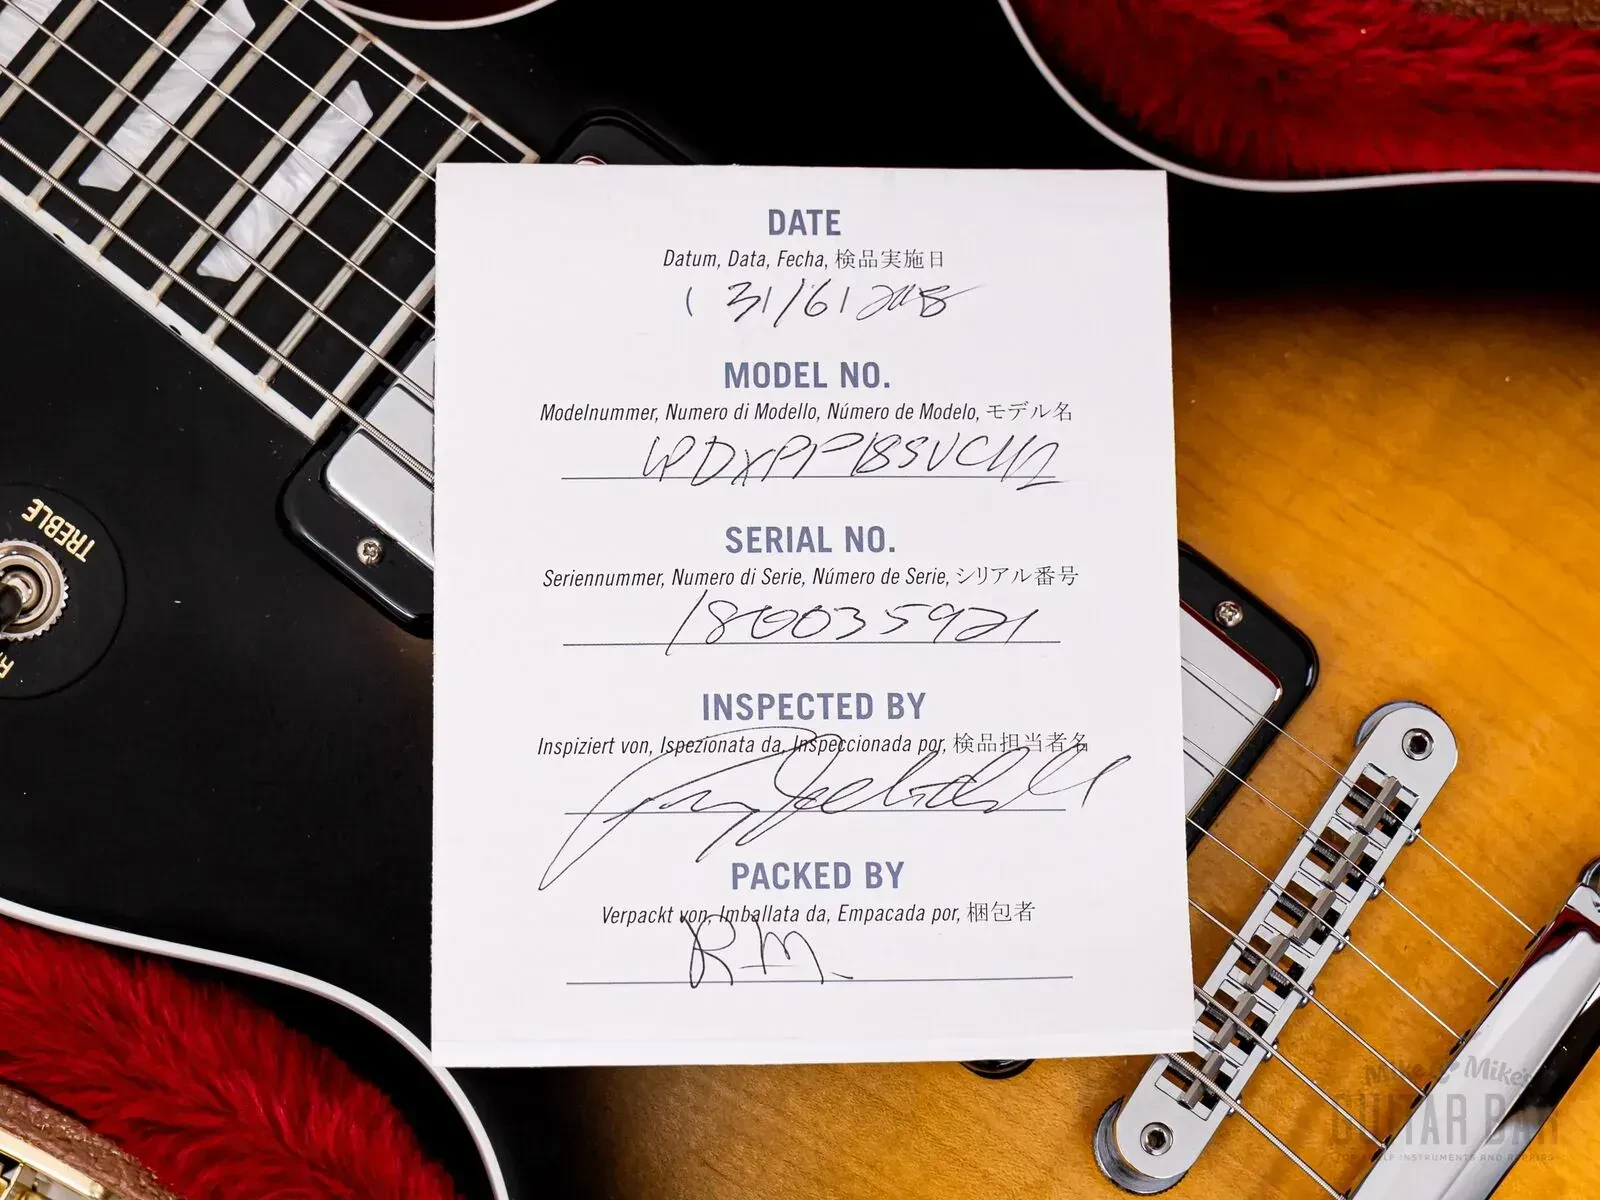 DATE
Datum, Data, Fecha, 検品実施日
MODEL NO.
Modelnummer, Numero di Modello, Número de Modelo, モデル名
LPDXPPP18SVCH1
SERIAL NO.
Seriennummer, Numero di Serie, Número de Serie, シリアル番号
180035921
INSPECTED BY
Inspiziert von, Ispezionata da, Inspeccionada por, 検品担当者名
PACKED BY
Verpackt von, Imballata da, Empacada por, 梱包者
R.M.
TREBLE
Mike & Mike's
GUITAR BAR